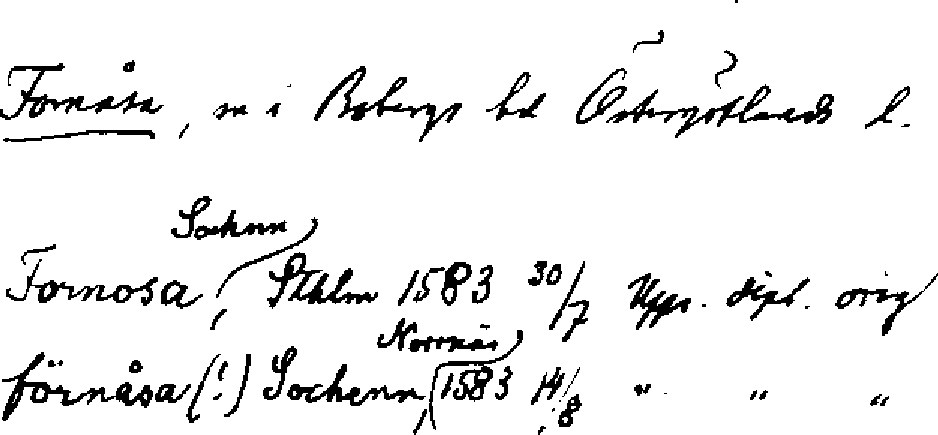 Fornåsa, sn i Bobergs hd Östergötlands l.
Sochnn
Fornosa, Sthlm 1583 30/7 Upps. dipl. orig
Norrnäs
förnåsa (!) Sochenn, 1583 14/8 " " "